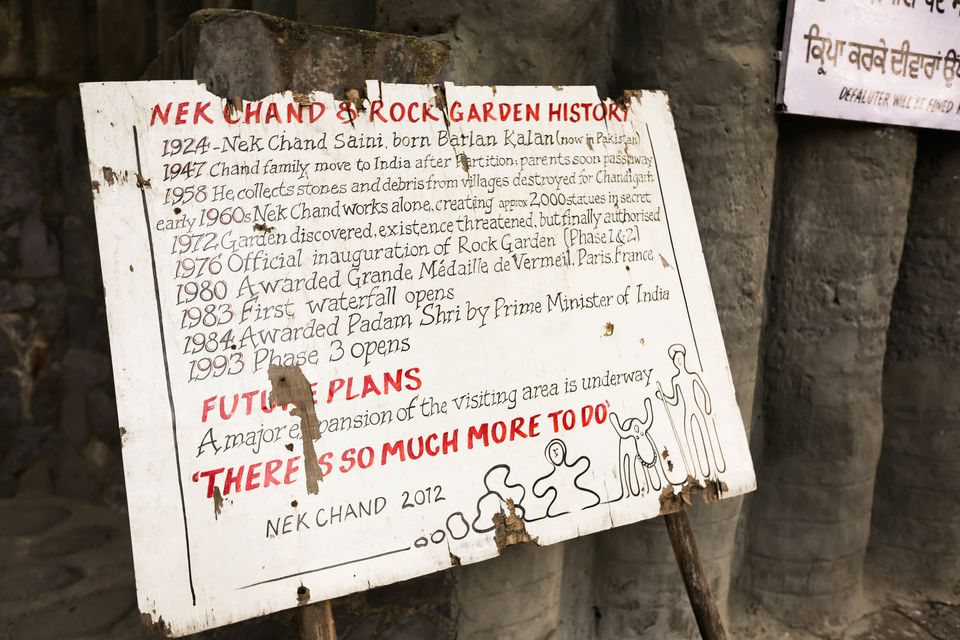 NEK CHAND & ROCK GARDEN HISTORY
1924-Nek Chand Saini, born Barian Kalan (now in Pakistan)
1947 Chand family move to India after Partition: parents soon pass away
1958 He collects stones and debris from villages destroyed for Chandigarh
early 1960s Nek Chand works alone, creating approx 2,000 statues in secret
1972 Garden discovered, existence threatened, but finally authorised
1976 Official inauguration of Rock Garden (Phase 1 & 2)
1980 Awarded Grande Médaille de Vermeil, Paris, France
1983 First waterfall opens
1984 Awarded Padam Shri by Prime Minister of India
1993 Phase 3 opens
FUTURE PLANS
A major expansion of the visiting area is underway
'THERE IS SO MUCH MORE TO DO'
NEK CHAND 2012
ਕ੍ਰਿਪਾ ਕਰਕੇ ਦੀਵਾਰਾਂ
DEFALUTER WILL BE FINED